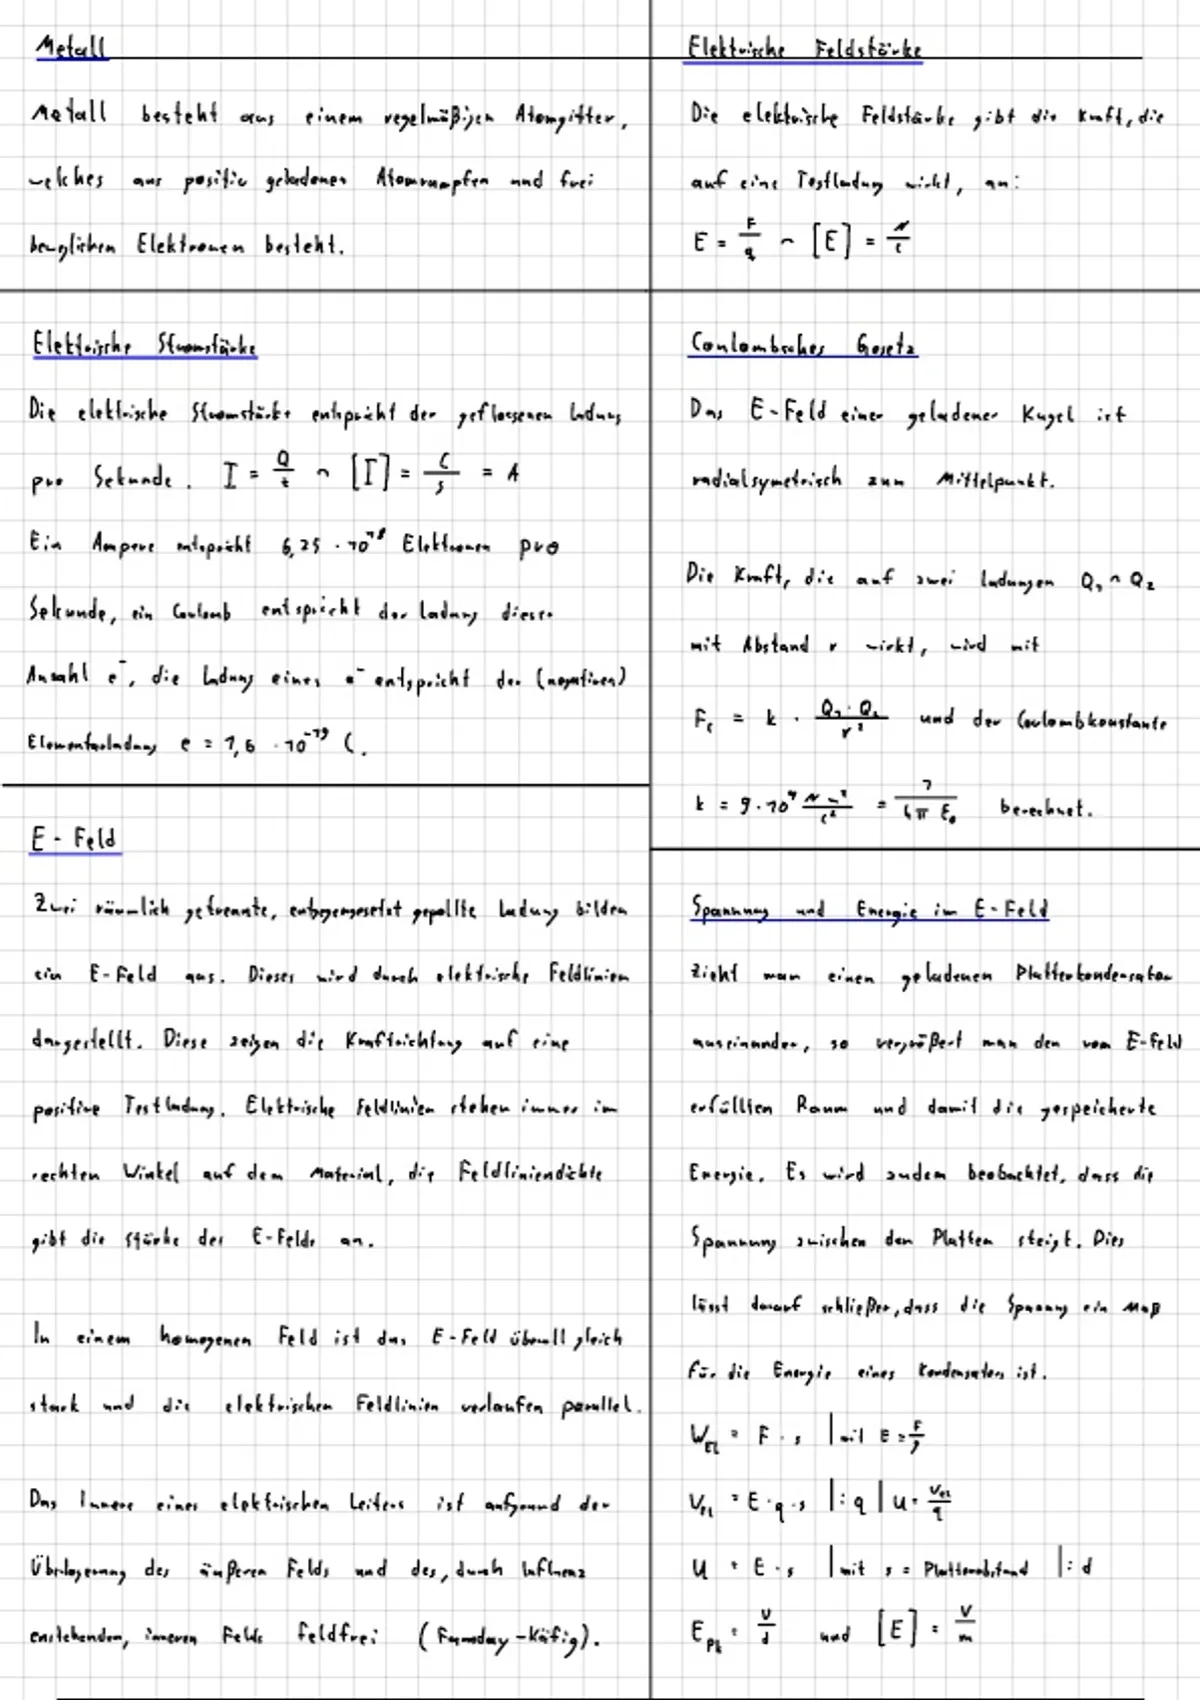 Metall
Metall besteht aus einem regelmäßigen Atomgitter,
welches aus positiv geladenen Atomrumpfen und frei
beweglichen Elektronen besteht.
Elektrische Stromstärke
Die elektrische Stromstärke entspricht der geflossenen Ladung
pro Sekunde. I = Q/t ⌢ [I] = C/s = A
Ein Ampere entspricht 6,25 · 10^18 Elektronen pro
Sekunde, ein Coulomb entspricht der Ladung dieser
Anzahl e⁻, die Ladung eines e⁻ entspricht der (negativen)
Elementarladung e = 1,6 · 10^-19 C.
E-Feld
Zwei räumlich getrennte, entgegengesetzt gepollte Ladung bilden
ein E-Feld aus. Dieses wird durch elektrische Feldlinien
dargestellt. Diese zeigen die Kraftrichtung auf eine
positive Testladung. Elektrische Feldlinien stehen immer im
rechten Winkel auf dem Material, die Feldliniendichte
gibt die Stärke des E-Felds an.
In einem homogenen Feld ist das E-Feld überall gleich
stark und die elektrischen Feldlinien verlaufen parallel.
Das Innere eines elektrischen Leiters ist aufgrund der
Überlagerung des äußeren Felds und des, durch Influenz
entstehenden, inneren Felds feldfrei (Faraday-Käfig).
Elektrische Feldstärke
Die elektrische Feldstärke gibt die Kraft, die
auf eine Testladung wirkt, an:
E = F/q ⌢ [E] = N/C
Coulombsches Gesetz
Das E-Feld einer geladener Kugel ist
radialsymetrisch zum Mittelpunkt.
Die Kraft, die auf zwei Ladungen Q₁ ⌢ Q₂
mit Abstand r wirkt, wird mit
F_C = k · Q₁·Q₂/r² und der Coulombkonstante
k = 9·10^9 N m²/C² = 1/(4π ε₀) berechnet.
Spannung und Energie im E-Feld
Zieht man einen geladenen Plattenkondensator
auseinander, so vergrößert man den vom E-Feld
erfüllten Raum und damit die gespeicherte
Energie. Es wird zudem beobachtet, dass die
Spannung zwischen den Platten steigt. Dies
lässt darauf schließen, dass die Spannung ein Maß
für die Energie eines Kondensators ist.
W_EL = F · s | mit E = F/q
W_EL = E · q · s | : q | U = W_EL/q
U = E · s | mit s = Plattenabstand | : d
E_PK = U/d und [E] = V/m